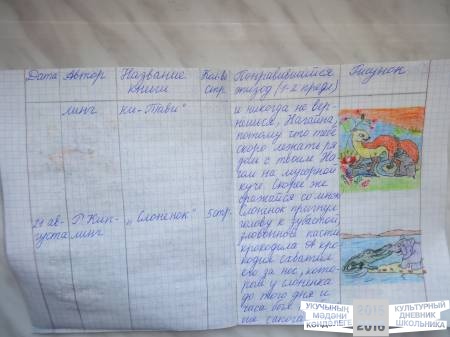 Дата Автор Название книги Кол-во стр. Понравившийся эпизод (1-2 предл) Рисунок
линг ки-Тави"
и никогда не вер-
нешься, Нагайна,
потому что тебе
скоро лежать ря
дом с твоим На
гом на мусорной
куче. Скорее же
сражайся со мной
21 ав-
густа
Р. Кип-
линг
„Слоненок"
5 стр.
Слоненок пригнул
голову к зубастой,
зловонной пасти
крокодила. А кро-
кодил схватил
его за нос, кото-
рый у слоненка
до того дня и
часа был
не
УКУЧЫНЫҢ
МӘДӘНИ
КӨНДӘЛЕГЕ
2015
2016
КУЛЬТУРНЫЙ
ДНЕВНИК
ШКОЛЬНИКА